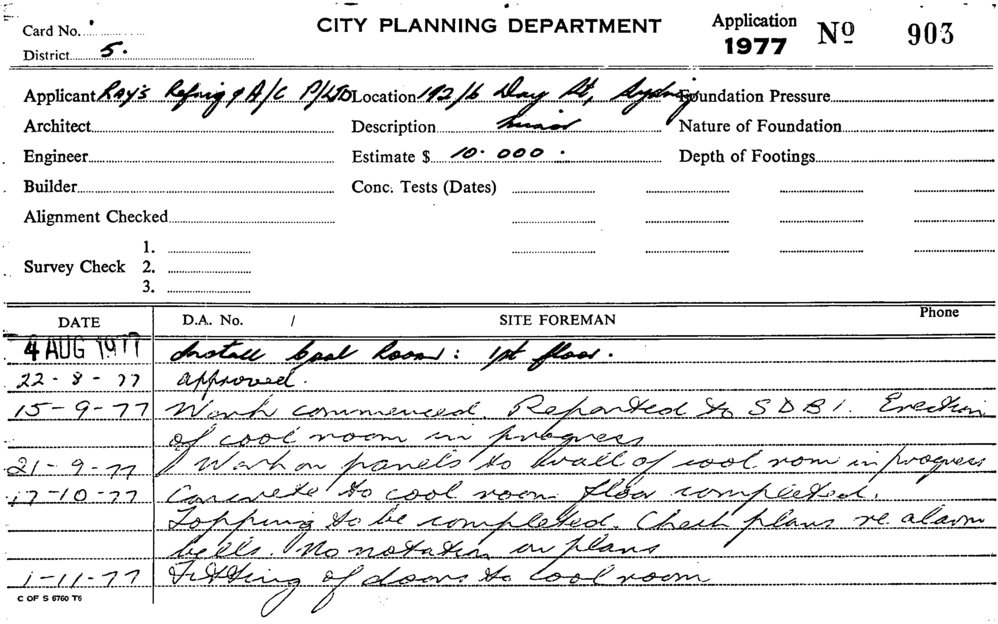 Card No.
CITY PLANNING DEPARTMENT
Application 1977 Nº 903
District 5.
Applicant Ray's Refrig & A/C P/LTD Location 192/6 Day St, Sydney Foundation Pressure
Architect Description Minor Nature of Foundation
Engineer Estimate $ 10.000. Depth of Footings
Builder Conc. Tests (Dates)
Alignment Checked
1.
Survey Check 2.
3.
DATE D.A. No. / SITE FOREMAN Phone
4 AUG 1977 Install Cool Room: 1st floor.
22-8-77 approved.
15-9-77 Work commenced. Reported to SDBI. Erection
of cool room in progress
21-9-77 Work on panels to wall of cool room in progress
17-10-77 Concrete to cool room floor completed.
Topping to be completed. Check plans re. alarm
bells. No notation on plans
1-11-77 Fitting of doors to cool room
C OF S 6760 T6